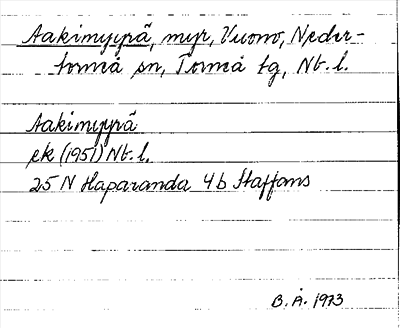 Aakimyypä, myr, Vuono, Neder-
torneå sn, Torneå tg, Nb. l.
Aakimyypä
ek (1951) Nb. l.
25 N Haparanda 4b Staffans
B. Å. 1973